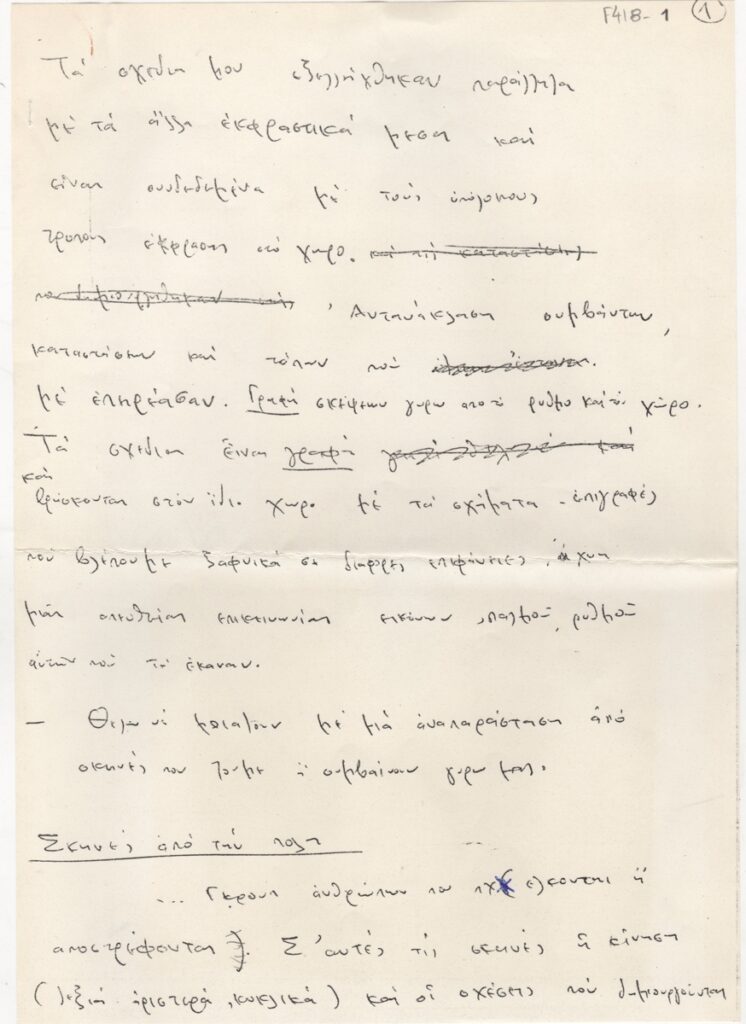 F418-1 1
Τά σχέδια μου εξελλήχθηκαν παράλληλα
μέ τά άλλα έκφραστικά μεσα καί
είναι συνδεδεμένα μέ τούς ύπόλοιπους
τροπους έκφρασης στό χωρο. καί τίς καταστάσεις
Αντανάκλαση συμβάντων,
καταστάσεων καί τόπων πού
μέ επηρέασαν. Γραφή σκέψεων γυρω από τό ρυθμο καί τό χώρο.
Τά σχεδια είναι γραφή καί
καί
βρίσκονται στόν ίδιο χωρο μέ τά σχήματα - επιγραφές
πού βλέπουμε ξαφνικά σε διαφορες επιφάνειες,
μιά απευθείας επικοινωνία εικόνων, παλμού, ρυθμού
αυτών πού τά έκαναν.
— Θελω νά μοιαζουν μέ μιά άναπαράσταση άπό
σκηνές που ζουμε ή συμβαίνουν γυρω μας.
Σκηνές άπό τήν πολη
... Γκρουπ άνθρώπων που έλκονται ή
αποστρέφονται. Σ'αυτές τίς σκηνές ή κίνηση
(δεξιά άριστερά, κυκλικά) καί οί σχέσεις πού δημιουργούνται